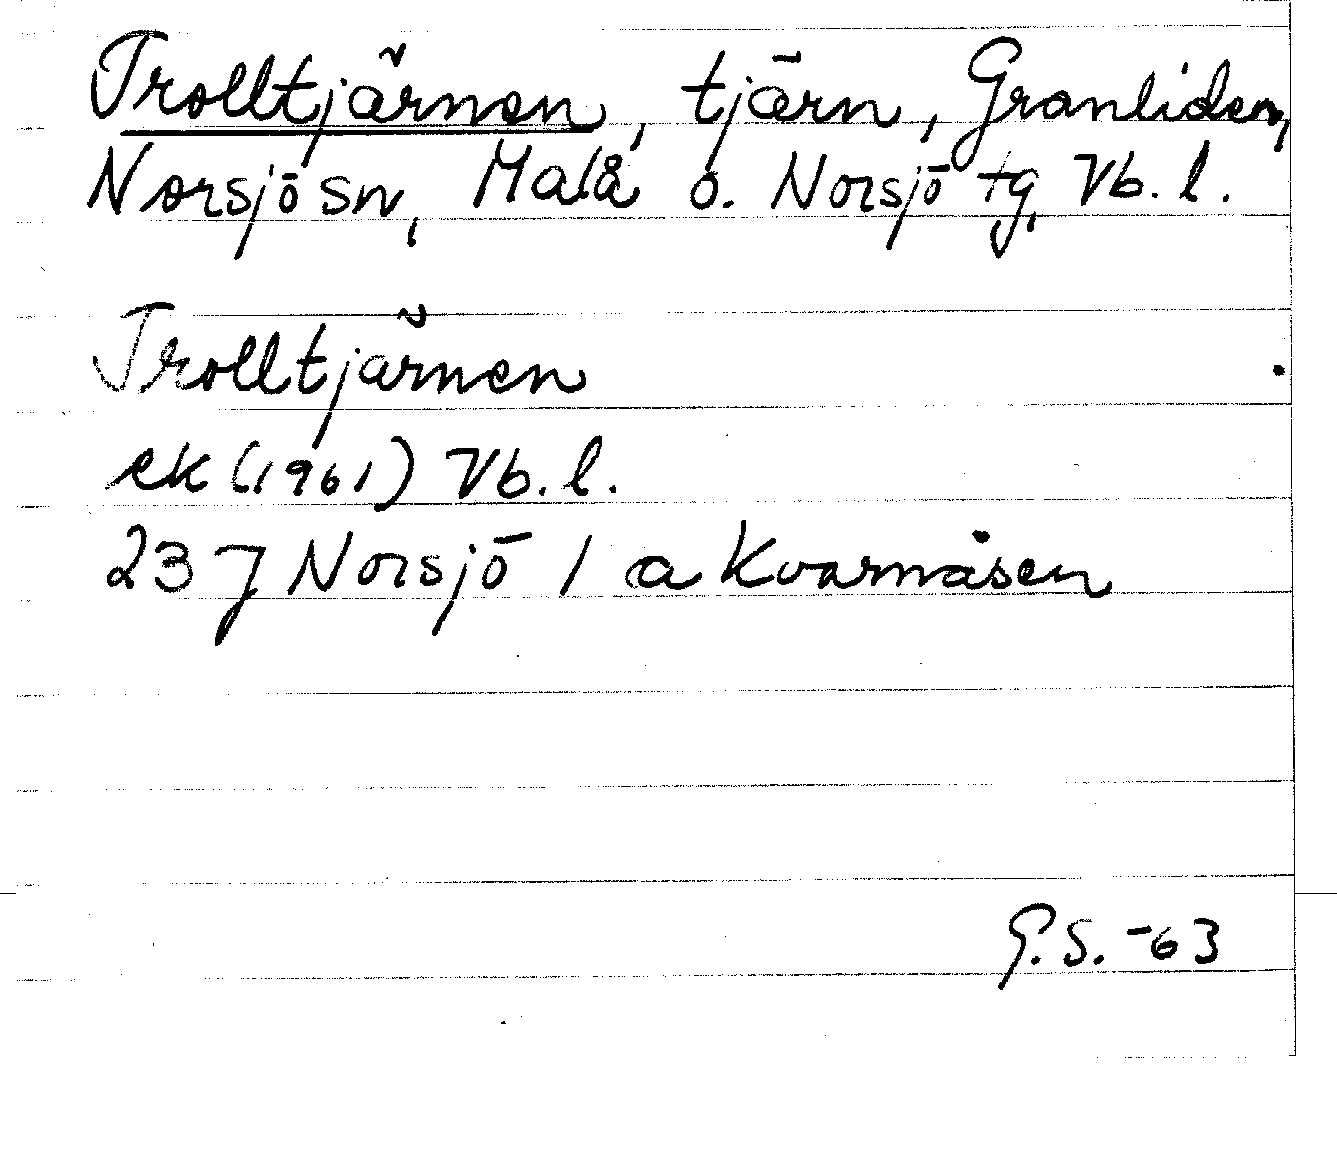 Trolltjärnen, tjärn, Granliden,
Norsjö sn, Malå o. Norsjö tg, Vb. l.
Trolltjärnen
ek (1961) Vb. l.
23 J Norsjö / a Kvarnåsen
G.S. -63